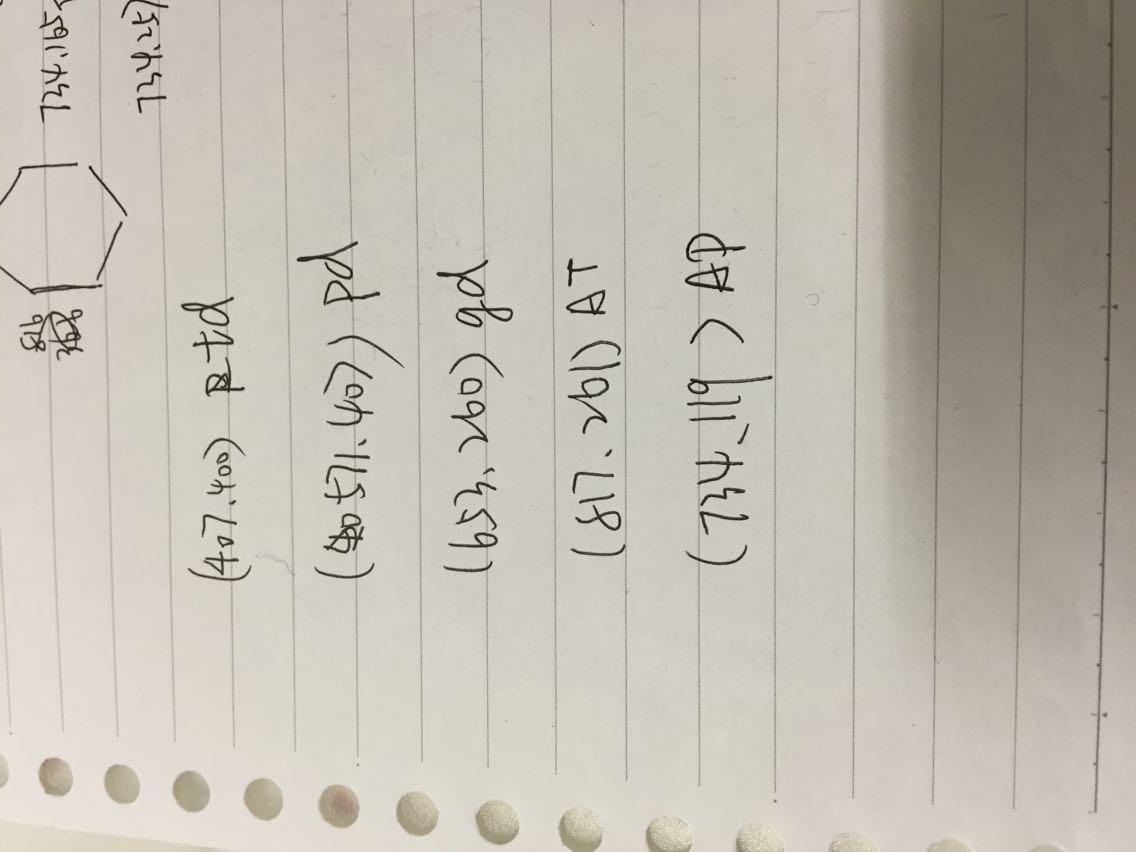 816
734.165
734.257
(407.400) td
(571.407) pd
(653、260) gd
(817、261) AT
(734、119) AP